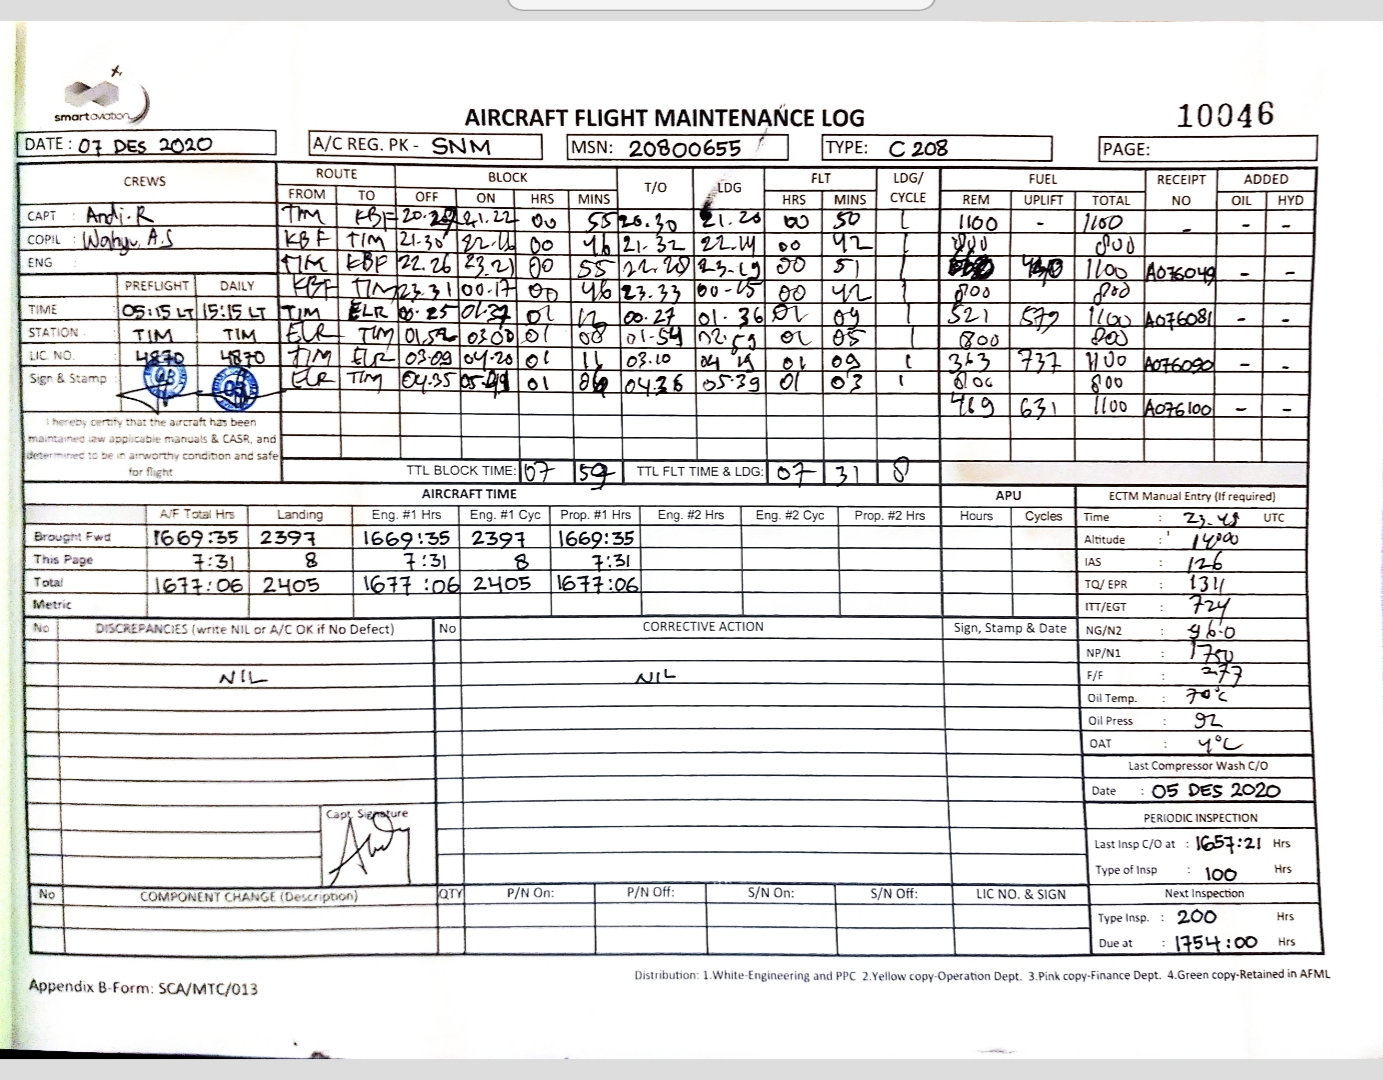 smartaviation
AIRCRAFT FLIGHT MAINTENANCE LOG
10046
DATE : 07 DES 2020 A/C REG. PK - SNM MSN: 20800655 TYPE: C 208 PAGE:
CREWS ROUTE BLOCK T/O LDG FLT LDG/ CYCLE FUEL RECEIPT NO ADDED
FROM TO OFF ON HRS MINS HRS MINS REM UPLIFT TOTAL OIL HYD
CAPT : Andi.R TIM KBF 21.22 00 55 20.30 21.20 00 50 1 1100 - 1100 - - -
COPIL : Wahyu A.S KBF TIM 21.30 00 46 21.32 22.14 00 42 1 800 800
ENG TIM KBF 22.26 23.21 00 55 22.28 23.19 00 51 1 1100 A076049 - -
PREFLIGHT DAILY KBF TIM 23.31 00.17 00 46 23.33 00-15 00 42 1 800 800
TIME 05:15 LT 15:15 LT TIM ELR 00.25 01.37 01 12 00.27 01.36 01 09 1 521 579 1100 A076081 - -
STATION : TIM TIM ELR TIM 01.52 03.00 01 08 01-54 02.59 01 05 1 800 800
LIC. NO. 4870 4870 TIM ELR 03.09 04.20 01 11 03.10 04 19 01 09 1 363 737 1100 A076090 - -
Sign & Stamp : ELR TIM 04.35 01 04.36 05.39 01 03 1 800 800
469 631 1100 A076100 - -
I hereby certify that the aircraft has been
maintained iaw applicable manuals & CASR, and
determined to be in airworthy condition and safe
for flight
TTL BLOCK TIME: 07 59 TTL FLT TIME & LDG: 07 31 8
AIRCRAFT TIME APU ECTM Manual Entry (If required)
A/F Total Hrs Landing Eng. #1 Hrs Eng. #1 Cyc Prop. #1 Hrs Eng. #2 Hrs Eng. #2 Cyc Prop. #2 Hrs Hours Cycles Time : 23.45 UTC
Brought Fwd 1669:35 2397 1669:35 2397 1669:35 Altitude : 14000
This Page 7:31 8 7:31 8 7:31 IAS : 126
Total 1677:06 2405 1677:06 2405 1677:06 TQ/ EPR : 1311
Metric ITT/EGT : 724
No DISCREPANCIES (write NIL or A/C OK if No Defect) No CORRECTIVE ACTION Sign, Stamp & Date NG/N2 : 96.0
NP/N1 : 1750
NIL NIL F/F : 277
Oil Temp. : 70°C
Oil Press : 92
OAT : 4°C
Last Compressor Wash C/O
Date : 05 DES 2020
Capt. Signature
PERIODIC INSPECTION
Last Insp C/O at : 1657:21 Hrs
Type of Insp : 100 Hrs
No COMPONENT CHANGE (Description) QTY P/N On: P/N Off: S/N On: S/N Off: LIC NO. & SIGN Next Inspection
Type Insp. : 200 Hrs
Due at : 1754:00 Hrs
Distribution: 1.White-Engineering and PPC 2.Yellow copy-Operation Dept. 3.Pink copy-Finance Dept. 4.Green copy-Retained in AFML
Appendix B-Form: SCA/MTC/013